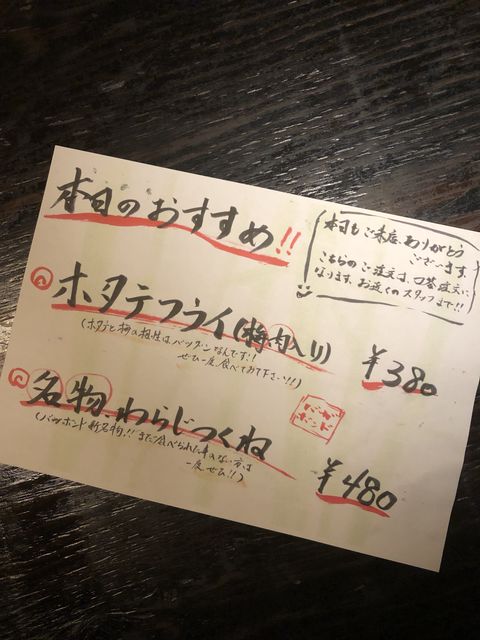 本日のおすすめ!!
本日もご来店、ありがとう
ございます
こちらのご注文は、口答注文に
なります。お近くのスタッフまで!!
ホタテフライ(梅肉入り)
¥380
(ホタテと梅の相性はバツグンなんです!!
ぜひ一度食べてみて下さい!!)
名物、わらじつくね
¥480
(バガボンド新名物!! まだ食べられた事のない方は
一度ぜひ!!)
バガ
ボンド